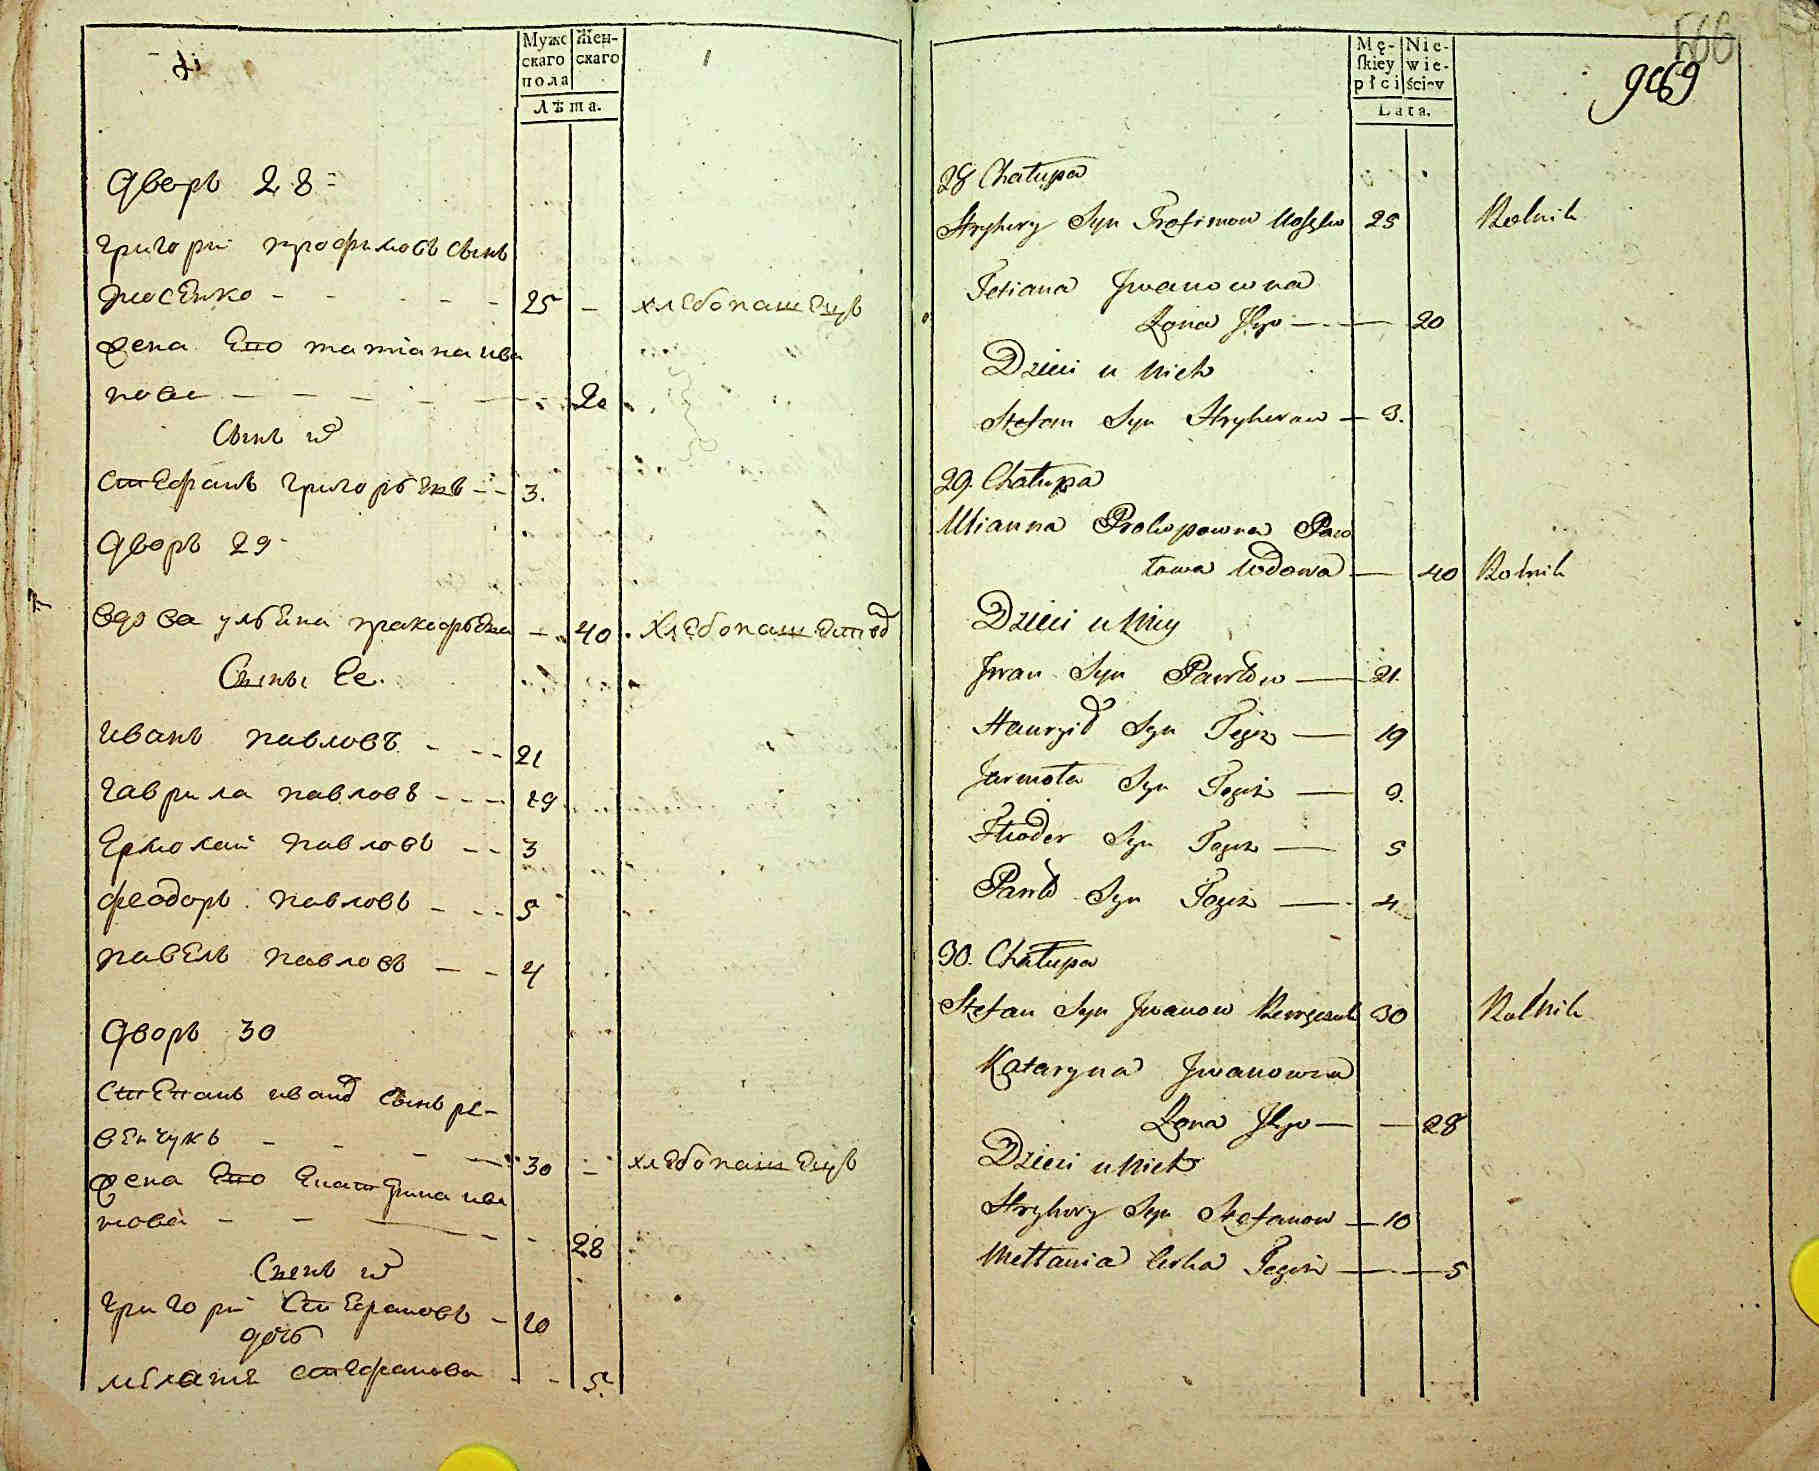 Мужс
скаго
пола
Жен-
скаго
Лѣта.
Дворъ 28
григори трофимовъ сынъ
мосенко - - - - - 25 - хлебопашецъ
жена Его татiана ива
нова - - - - - - 20
Сынъ их
Стефанъ григорьевъ - - 3.
Дворъ 29
вдова ульяна - 40 .
Сыны Ее.
иванъ павловъ - - - 21
гаврила павловъ - - - 19
Ермолай павловъ - - 3
феодоръ павловъ - - - 5
павелъ павловъ - - 4
Дворъ 30
Степанъ иванов сынъ ре-
венчукъ - - - - 30 - хлебопашецъ
жена Его Екатерина ива
нова - - - - - 28
Сынъ их
григори Стефановъ - 10
дочь
мелания стефанова - - 5.
566
9069
Mę-
skiey
płci
Nie-
wie-
ściey
Lata.
28 Chałupa
Hryhory Syn Trofimow 25 Rolnik
Tetiana Jwanowna
Zona Jego — - — 20
Dzieci u nich
Stefan Syn Hryherow — 3.
29. Chałupa
Ulianna Prokopowna Paw
łowa Wdowa — 40 Rolnik
Dzieci u Niey
Jwan Syn Pawłow — 21.
Hawryło Syn Tegoż — 19
Jarmoła Syn Tegoż — 9.
Fhodor Syn Tegoż — 5
Pawło Syn Tegoż — 4
30. Chałupa
Stefan Syn Jwanow Rewęczuk 30 Rolnik
Kataryna Jwanowna
Zona Jego — — 28
Dzieci u Nich
Hryhory Syn Stefanow — 10
Mełania Corka Tegoż — - — 5